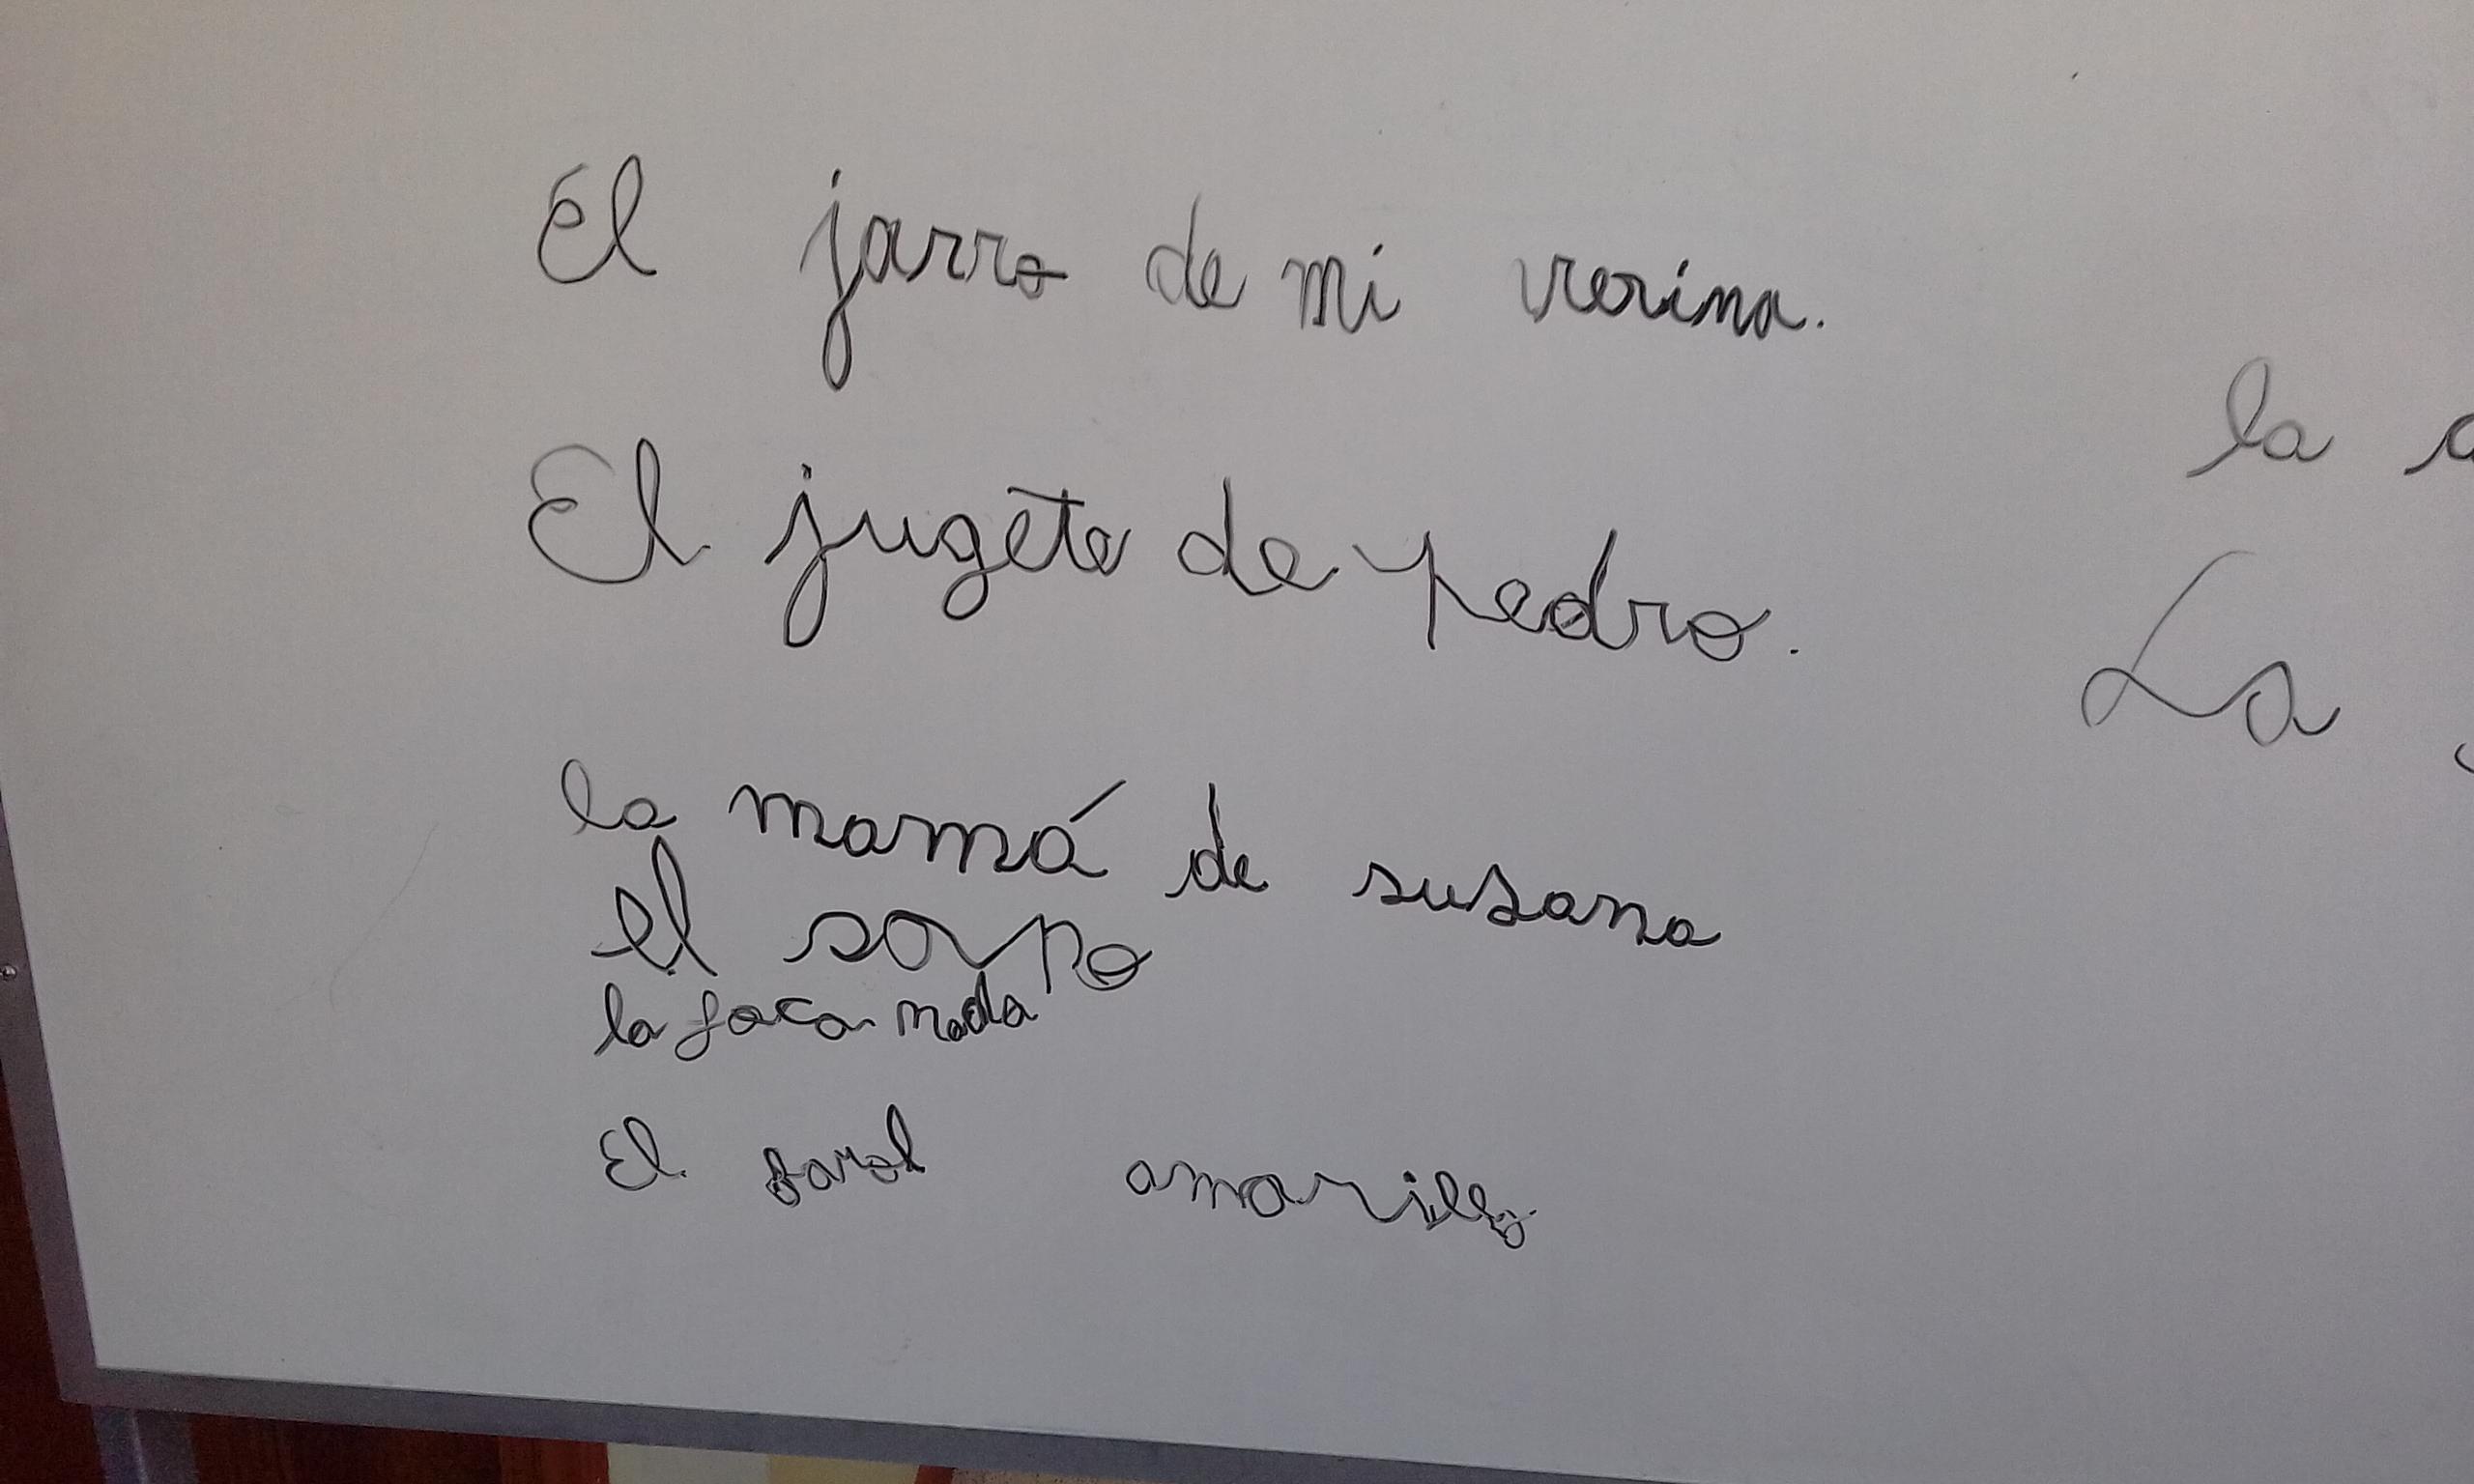 El jarro de mi vecina.
El jugete de pedro.
la mamá de susana
el sapo
la foca nada
El farol amarillo
la
La